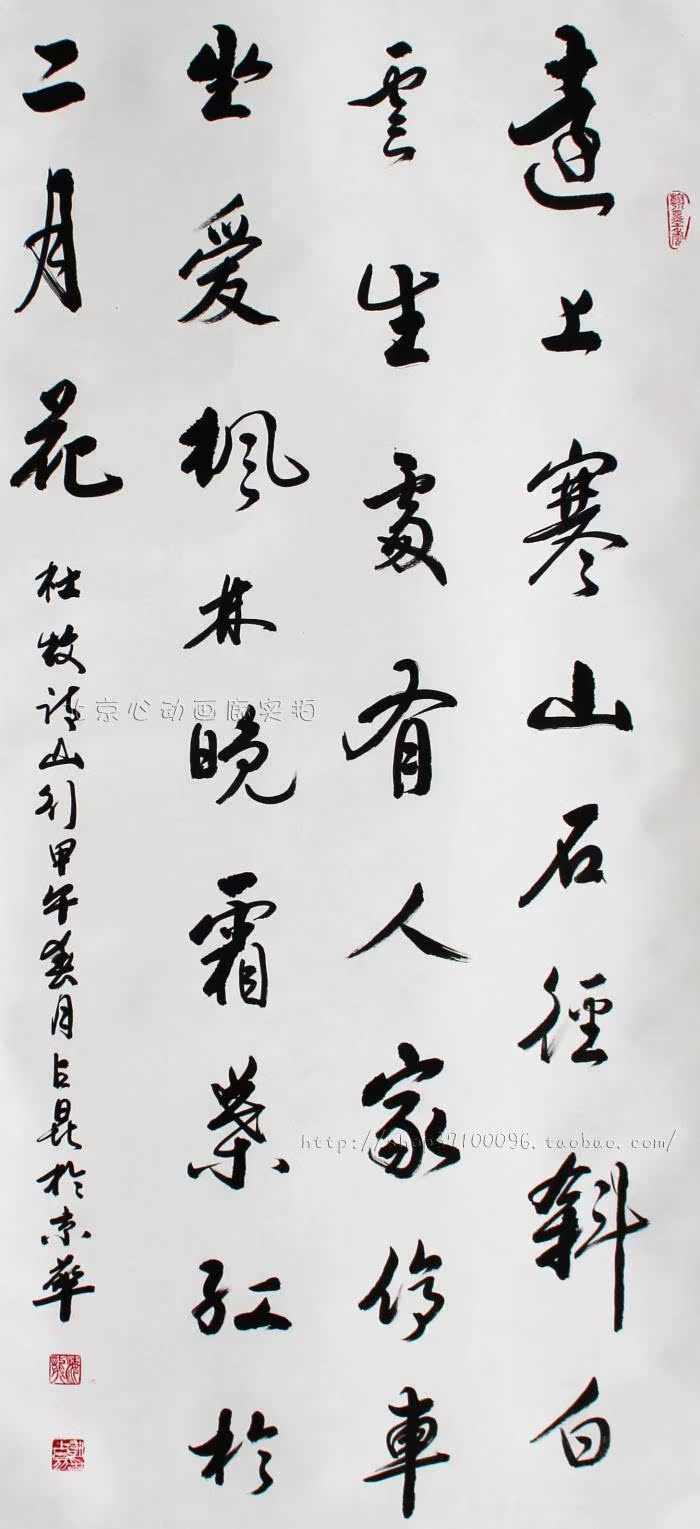 遠上寒山石徑斜白
雲生處有人家停車
坐愛楓林晚霜葉紅於
二月花
杜牧詩山行甲午春月占昆於京華
北京心动画廊实拍
http://shop37100096.taobao.com/